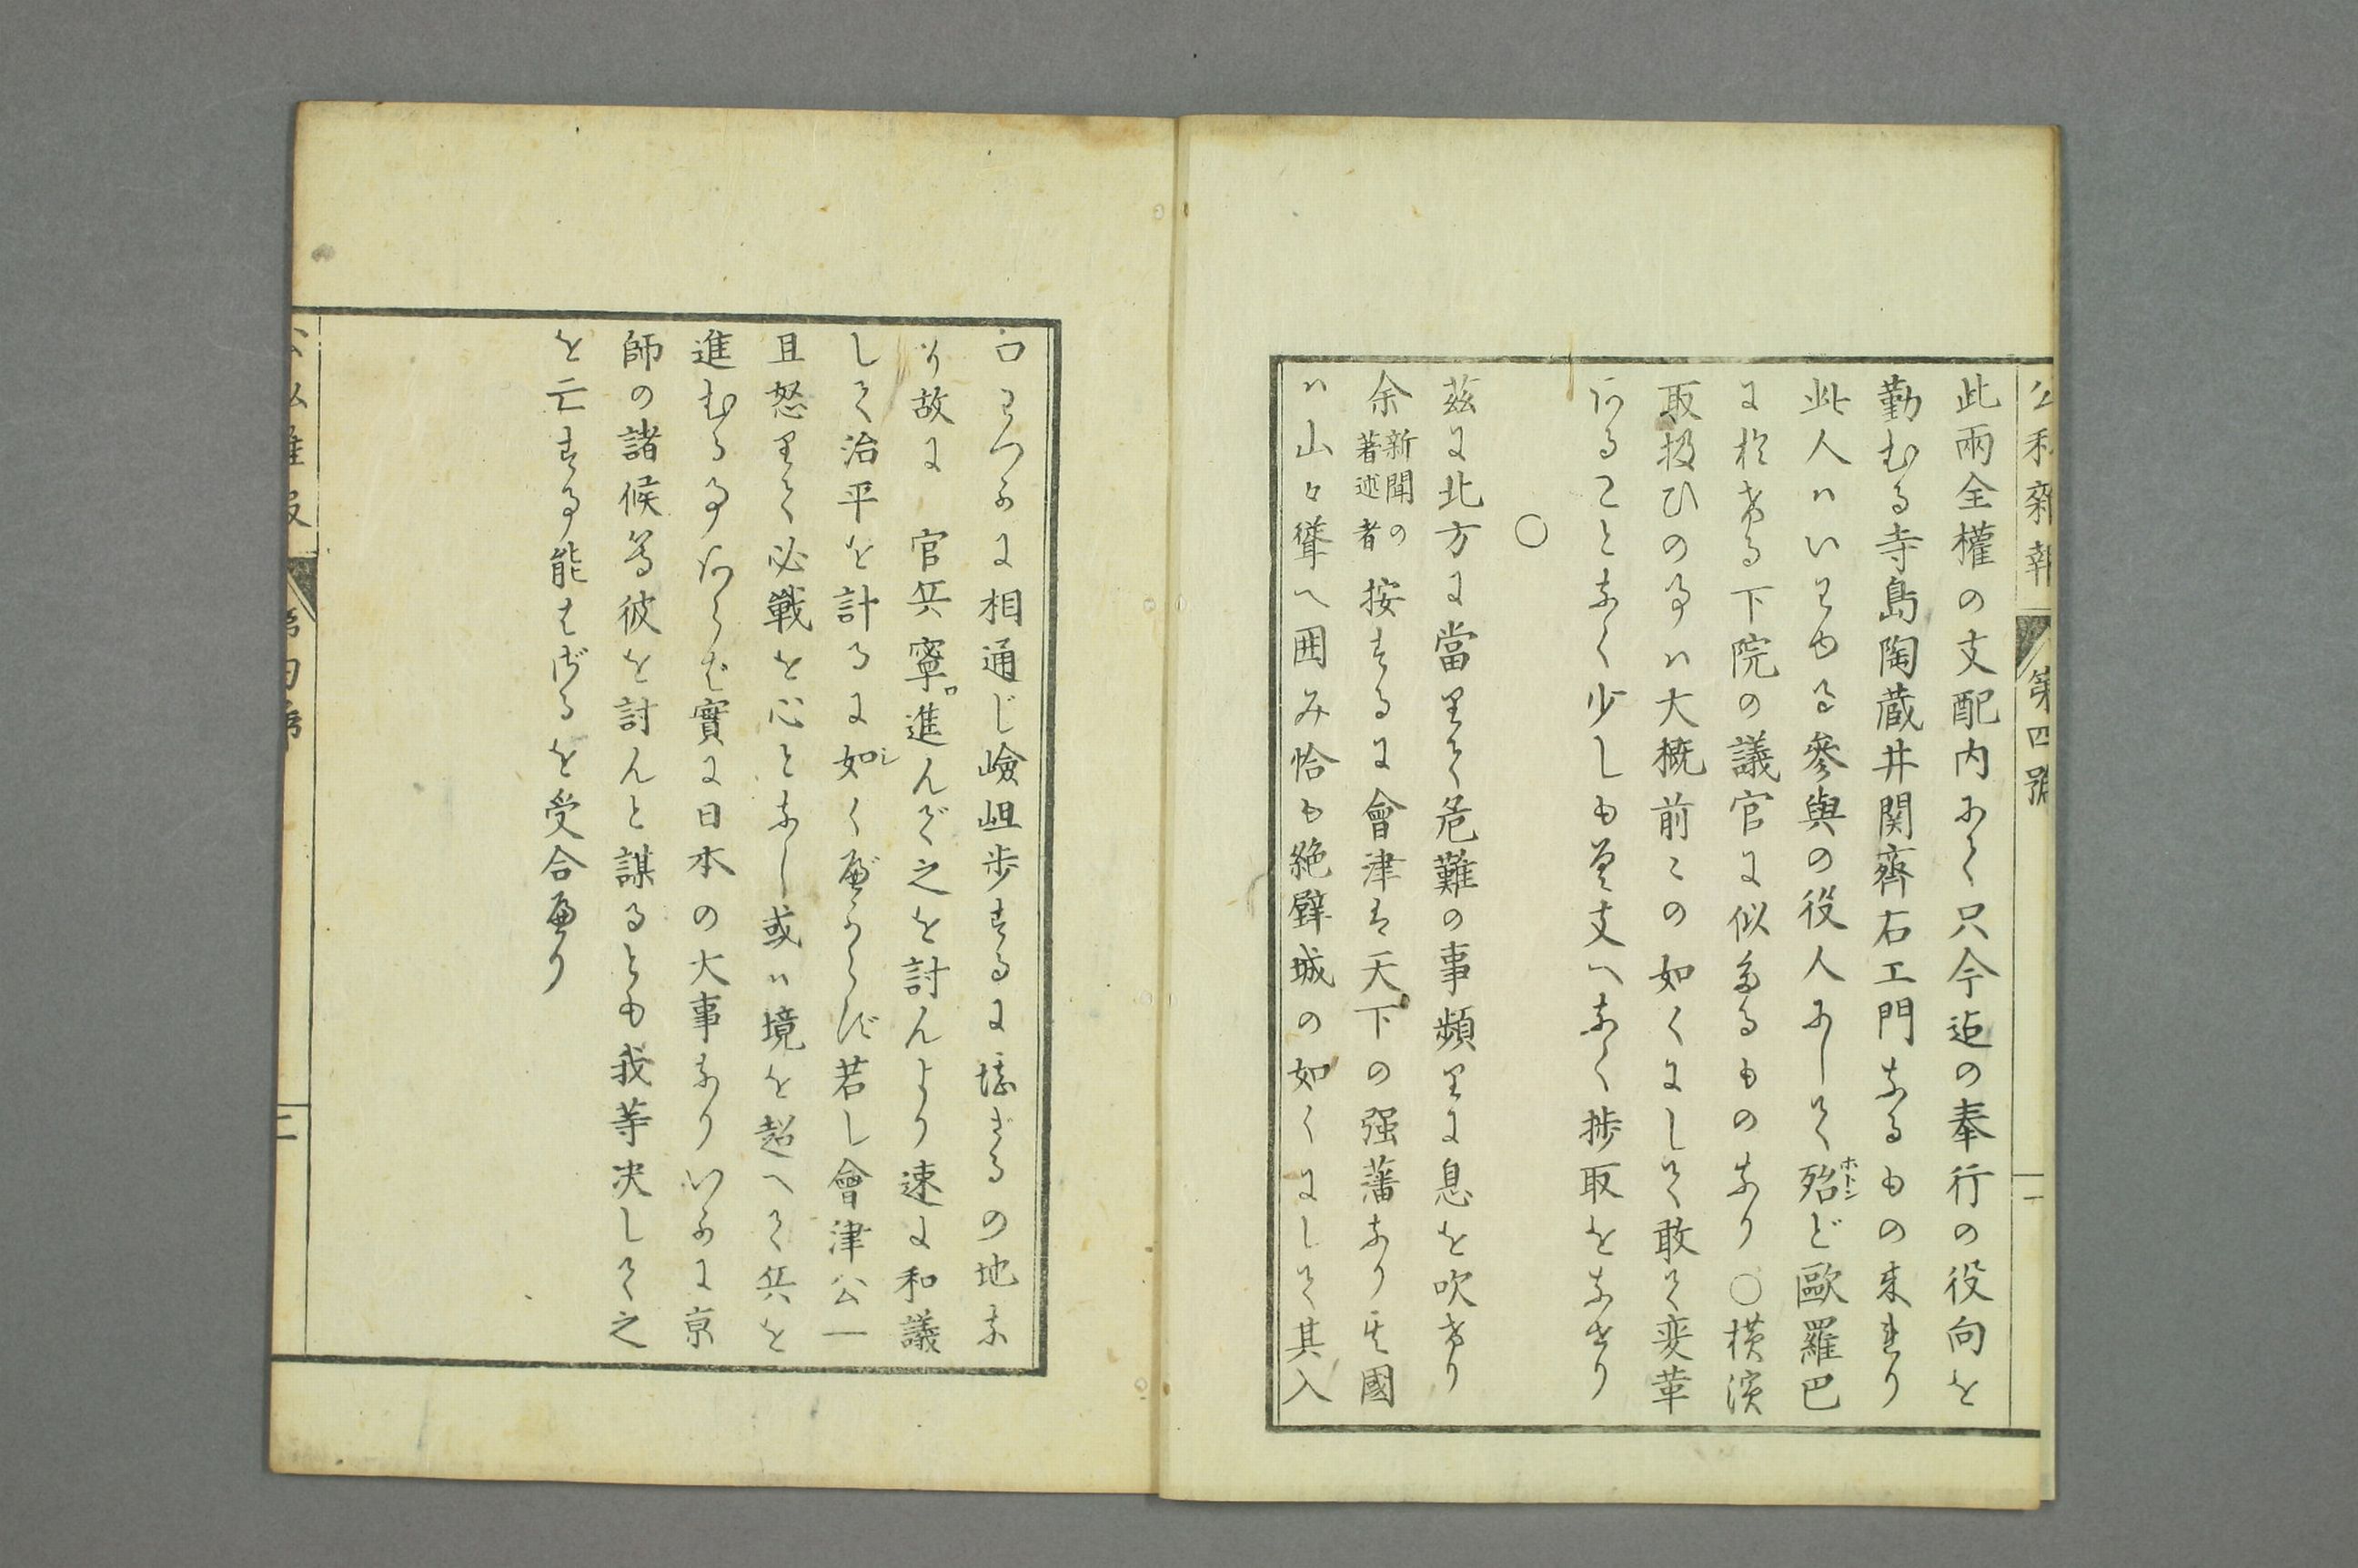 公私雜報 第四號 一
此兩全權の支配内にて只今迄の奉行の役向を
勤むる寺島陶蔵井関齊右エ門なるもの来れり
此人ハいわゆる參與の役人にして殆ど歐羅巴
ホトン
に於ける下院の議官に似たるものなり○横濱
取扱ひの事ハ大概前〻の如くにして敢て変革
あることなく少しも差支へなく捗取をなせり
○
茲に北方に當りて危難の事頻りに息を吹けり
余 新聞の著述者 按するに會津は天下の强藩なり其國
ハ山々聳へ囲み恰も絶壁城の如くにして其入
口わづかに相通じ嶮岨歩するに堪ざるの地な
り故に 官兵寧ロ進んで之を討んより速に和議
して治平を計るに如くべからず若し會津公一
シ
且怒りて必戰を心となし或ハ境を超へて兵を
進むる事あらば實に日本の大事なりいかに京
師の諸候等彼を討んと謀るとも我等决して之
を亡する事能はざるを受合べり
公私雜報 第四號 二